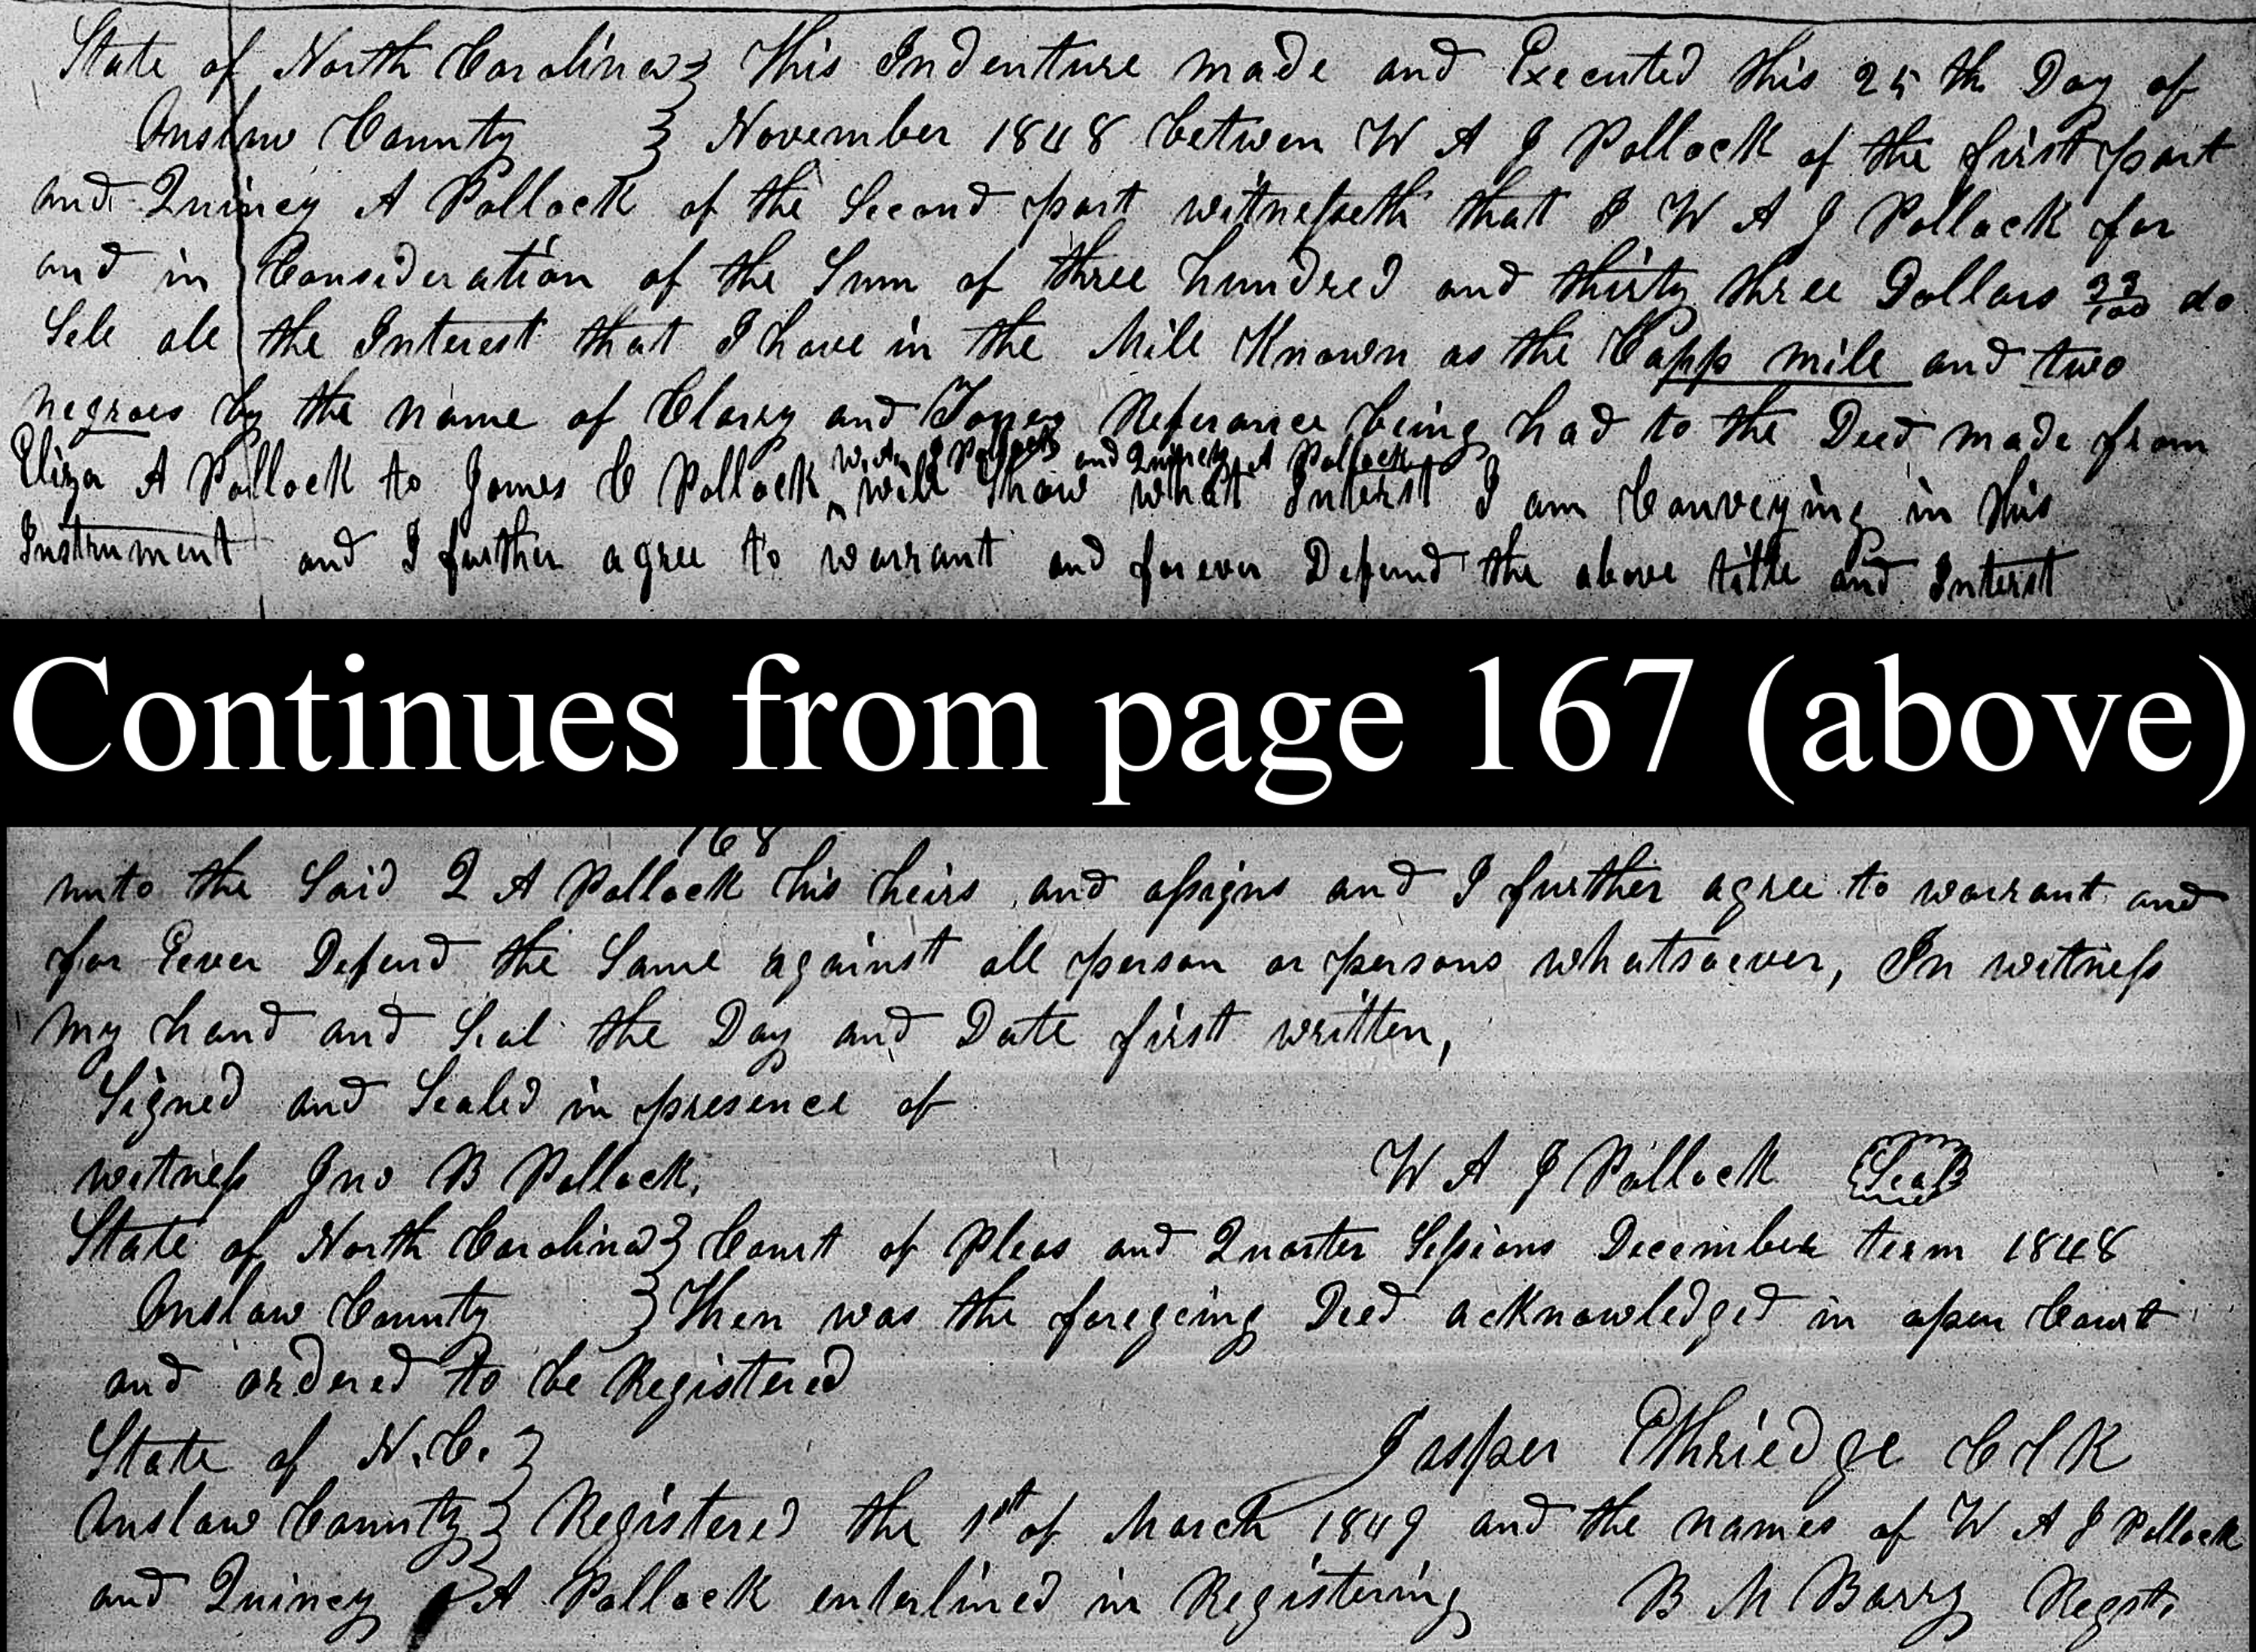 State of North Carolina } This Indenture made and Executed this 25th Day of
Onslow County } November 1848 betwen W A J Pollock of the first part
and Quincy A Pollock of the Second part witnesseth that I W A J Pollock for
and in Consideration of the Sum of three hundred and thirty three Dollars 33/100 do
Sell all the Interest that I have in the Mill Known as the Capp mill and two
negroes by the name of Clary and Toney Referance being had to the Deed made from
W. A. J Pollock and Quincy A Pollock
Eliza A Pollock to James C Pollock ^ will Show what Interst I am Conveying in this
Instrument and I further agree to warrant and forever Defend the above title and Interst
Continues from page 167 (above)
168
unto the Said Q A Pollock his heirs and assigns and I further agree to warrant and
for Eever Defend the Same against all person or persons whatsoever, In witness
my hand and Seal the Day and Date first written,
Signed and Sealed in presence of
witness Jno B Pollock. W A J Pollock Seal
State of North Carolina } Court of Pleas and Quarter Sessions December term 1848
Onslow County } Then was the foregoing Deed acknowledged in open Court
and ordered to be Registered
State of N. C. } Jasper Ethriedge Clk
Onslow County } Registered the 1st of March 1849 and the names of W A J Pollock
and Quincy A Pollock enterlined in Registering B M Barry Regst.